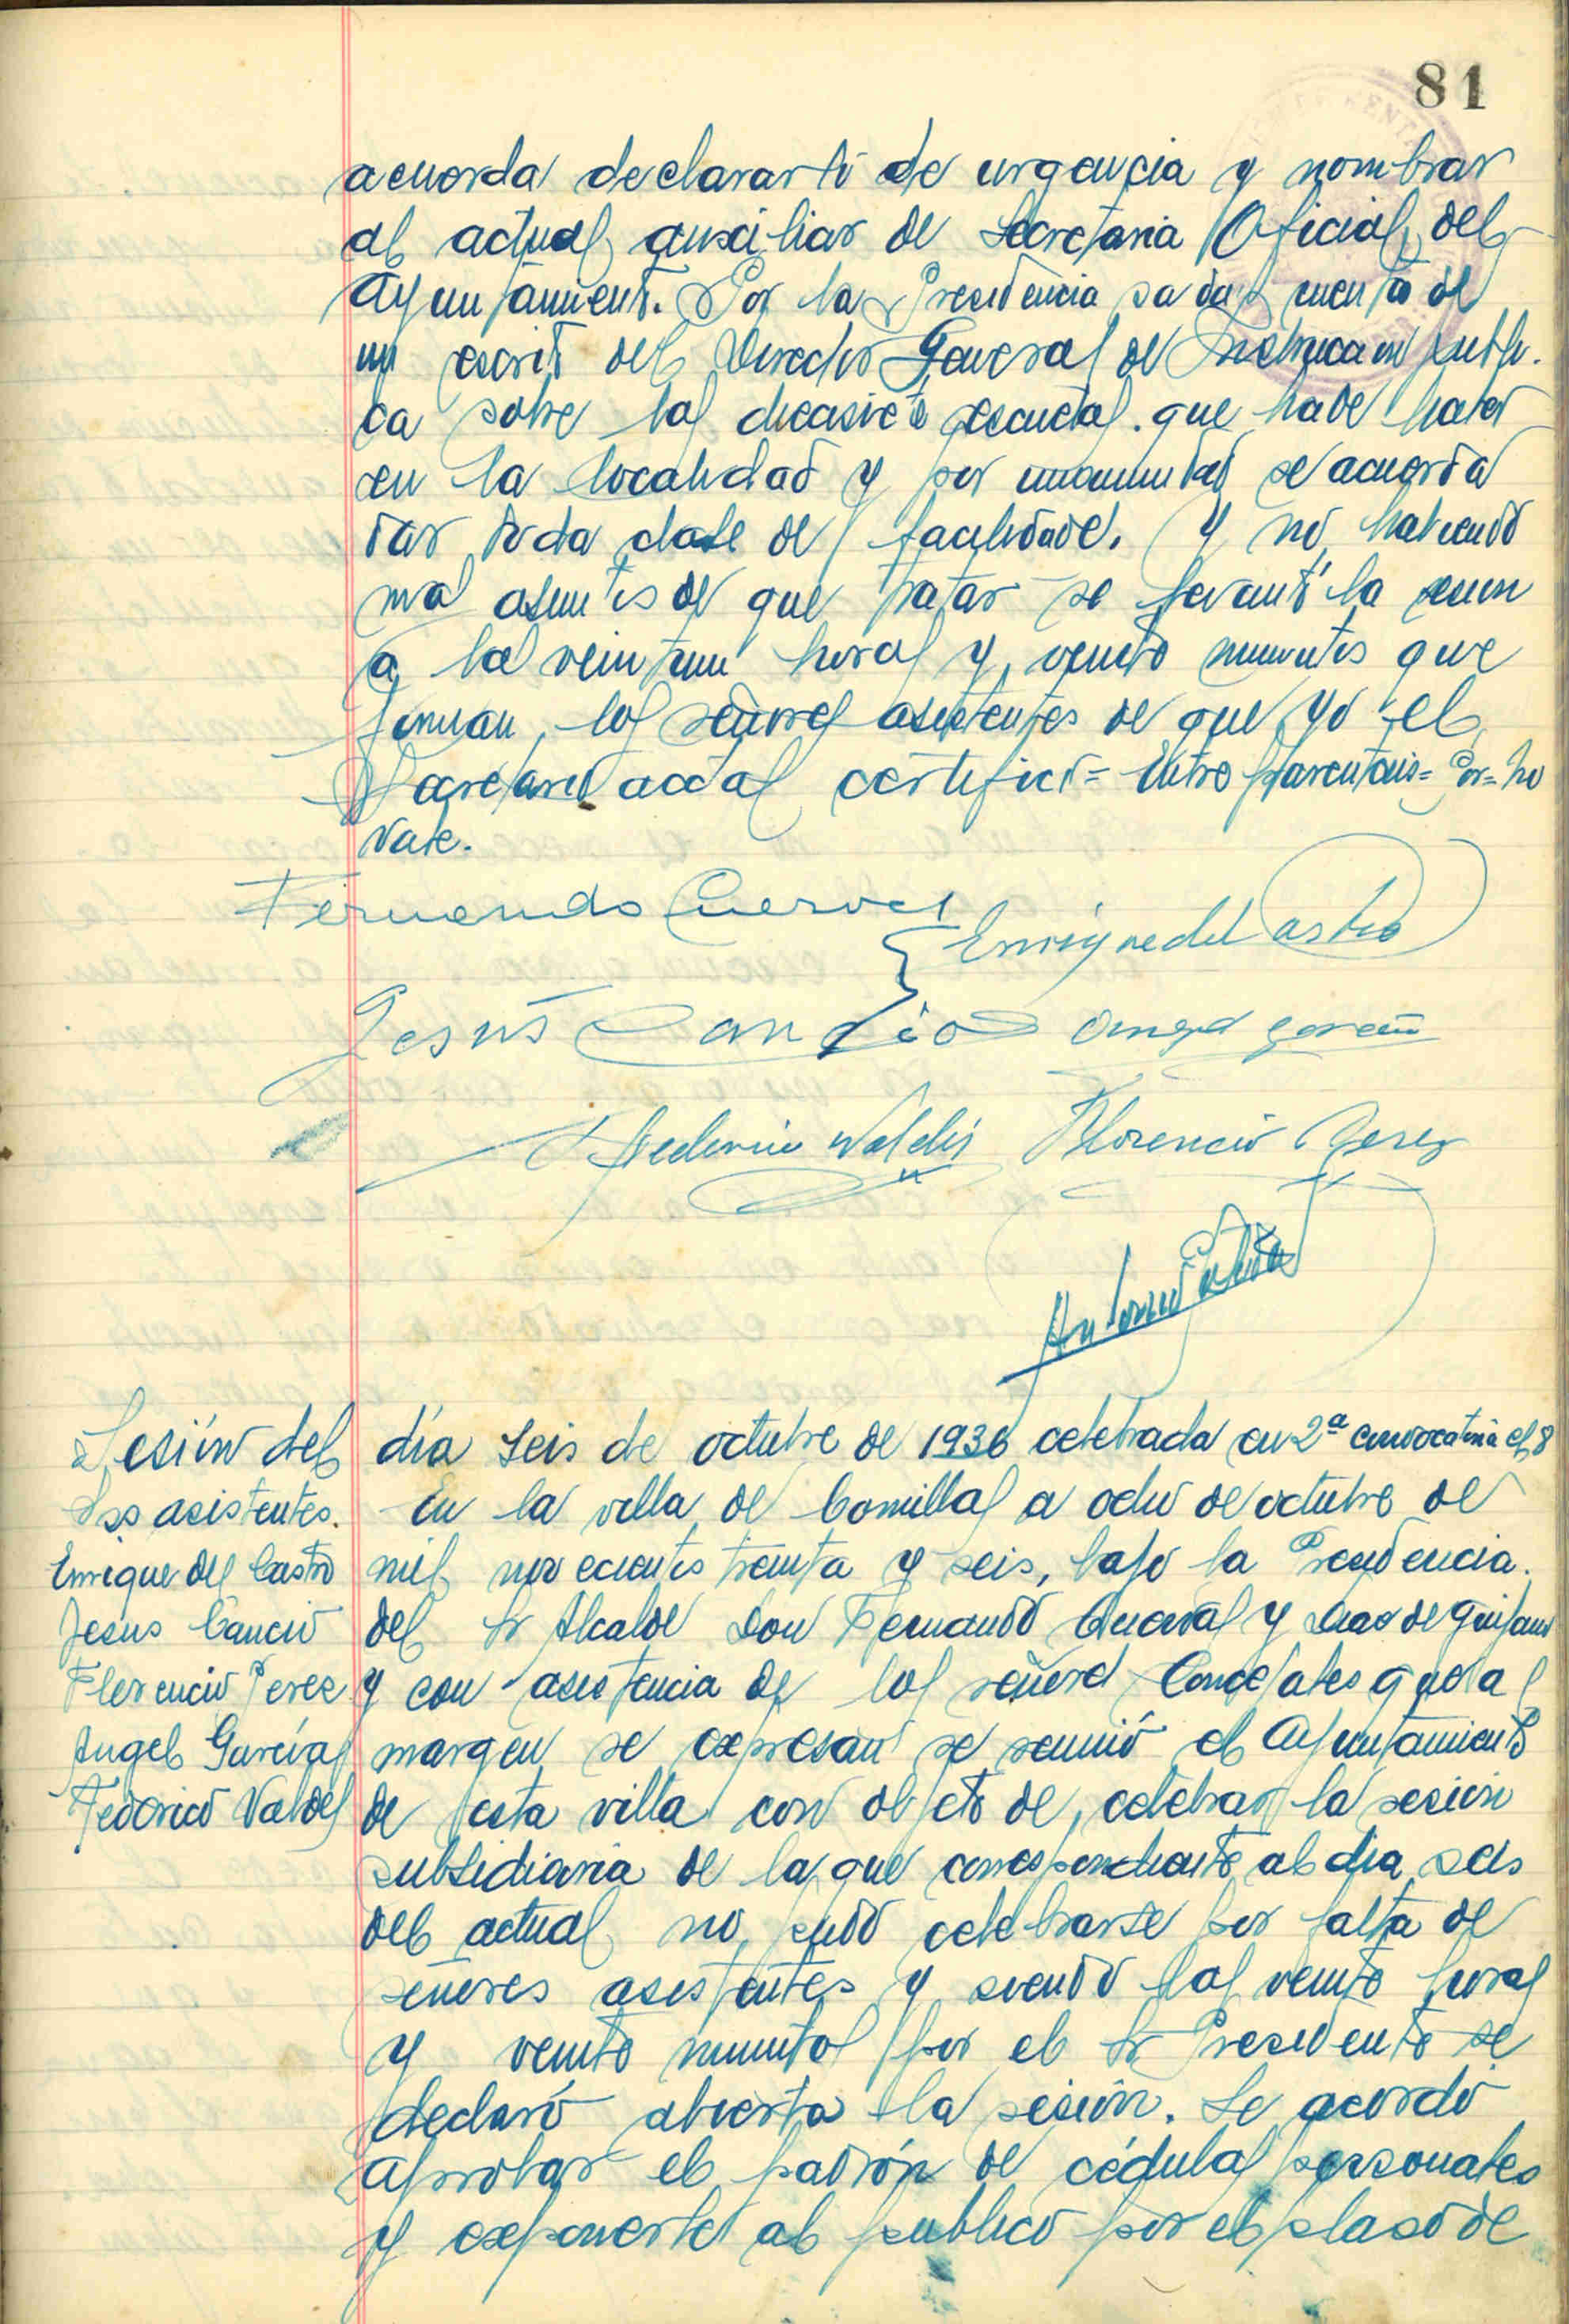 81
acuerda declararlo de urgencia y nombrar
al actual auxiliar de Secretaria Oficial del
Ayuntamiento. Por la Presidencia se da cuenta de
un escrito del Director General de Instruccion publi-
ca sobre las diecisiete escuelas que habe haber
en la localidad y por unanimidad se acuerda
dar toda clase de facilidades. Y no habiendo
mas asuntos de que tratar se levantó la sesion
a las veintiun horas y veinte minutos que
firman los señores asistentes de que yo el
Secretario acctal certifico = Entre parentesis = Por = no
vale.
Fernando Cueras
Enrique del Castro
Jesús Cancio
Angel Garcia
Federico Valdés
Florencio Perez
Antonio
Sesión del día seis de octubre de 1936 celebrada en 2ª convocatoria el 8
Sres asistentes.
Enrique del Castro
Jesus Cancio
Florencio Perez
Angel García
Federico Valdes
En la villa de Comillas a ocho de octubre de
mil novecientos treinta y seis, bajo la Presidencia
del Sr Alcalde Don Fernando Cueras y Diaz de Guijarro
y con asistencia de los señores Concejales que al
margen se expresan se reunió el Ayuntamiento
de esta villa con objeto de celebrar la sesión
subsidiaria de la que correspondiente al dia seis
del actual no pudo celebrarse por falta de
señores asistentes y siendo las veinte horas
y veinte minutos por el Sr Presidente se
declaró abierta la sesión. Se acordó
aprobar el padrón de cédulas personales
y exponerlo al publico por el plazo de